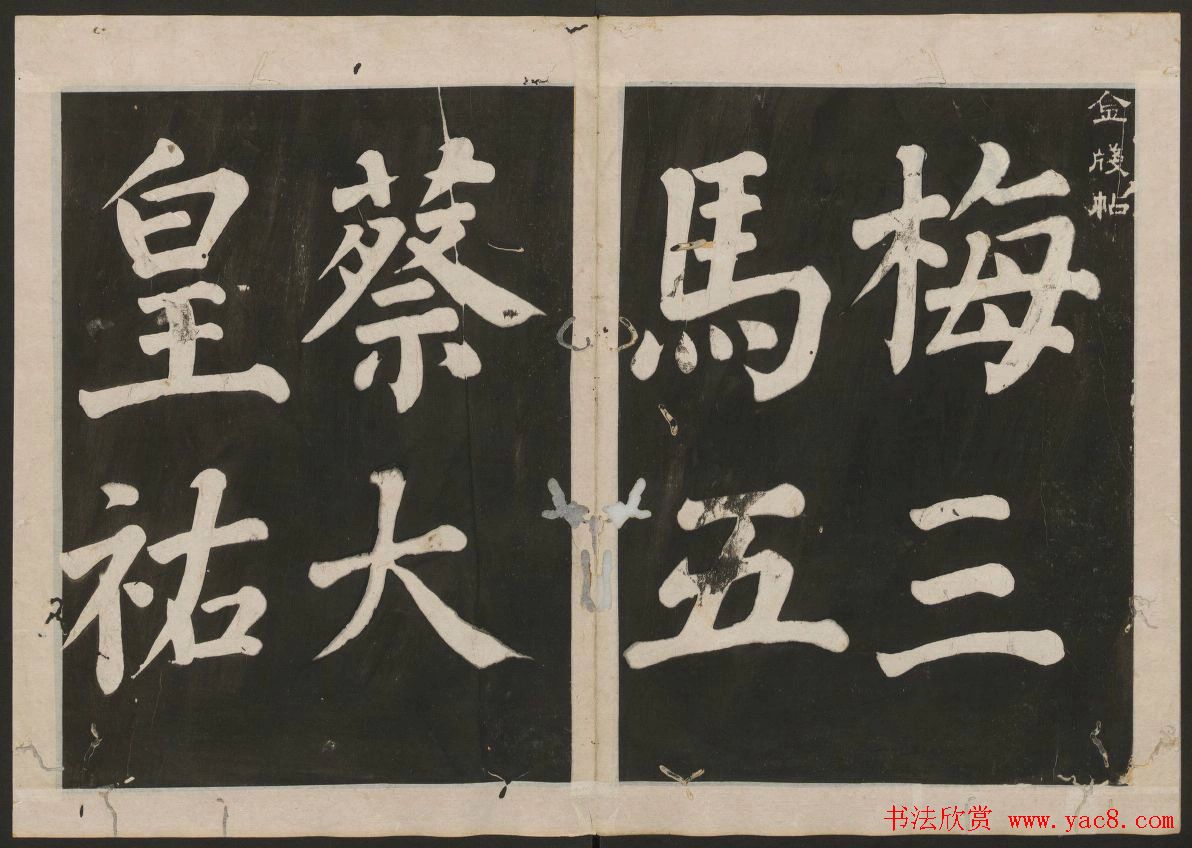 金牋帖
梅三
馬五
蔡大
皇祐
书法欣赏 www.yac8.com